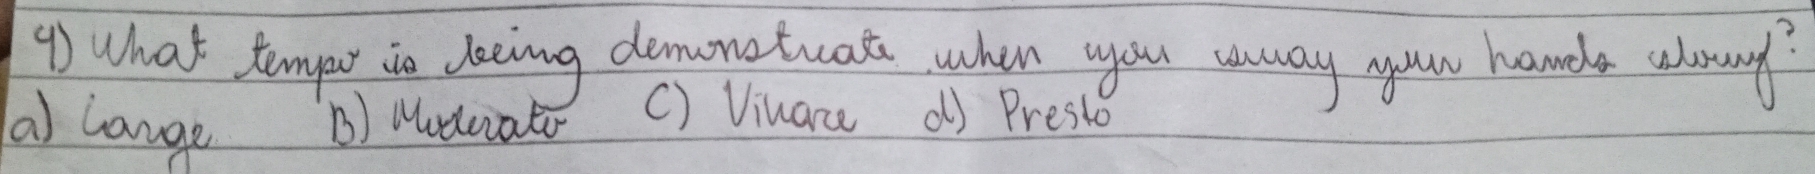 4) What tempo is being demonstrate when you sway your hands slowy?
a) Large B) Moderato C) Vivace d) Presto